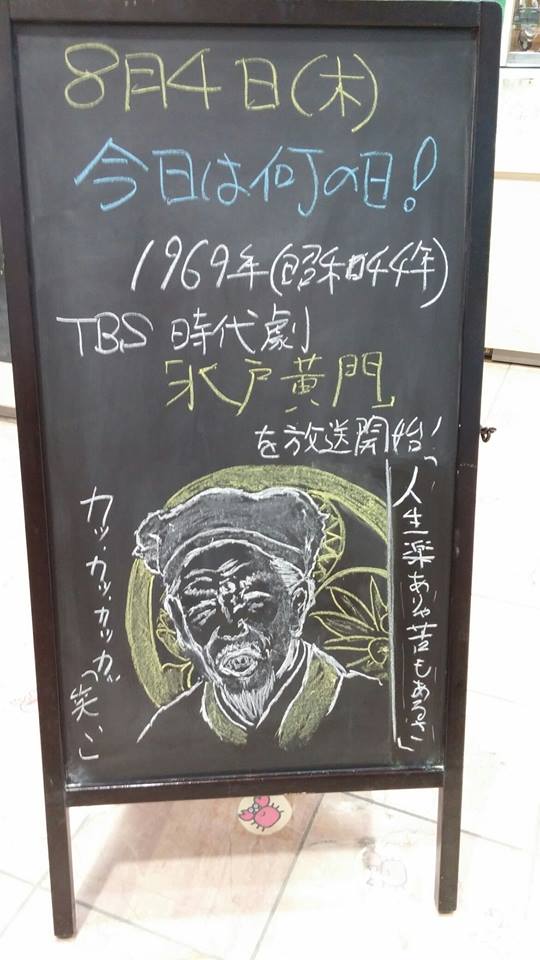 8月4日(木)
今日は何の日!
1969年(昭和44年)
TBS 時代劇
「水戸黄門」
を放送開始!
「人生楽ありゃ苦もあるさ」
カッ・カッカッカッ「笑い」